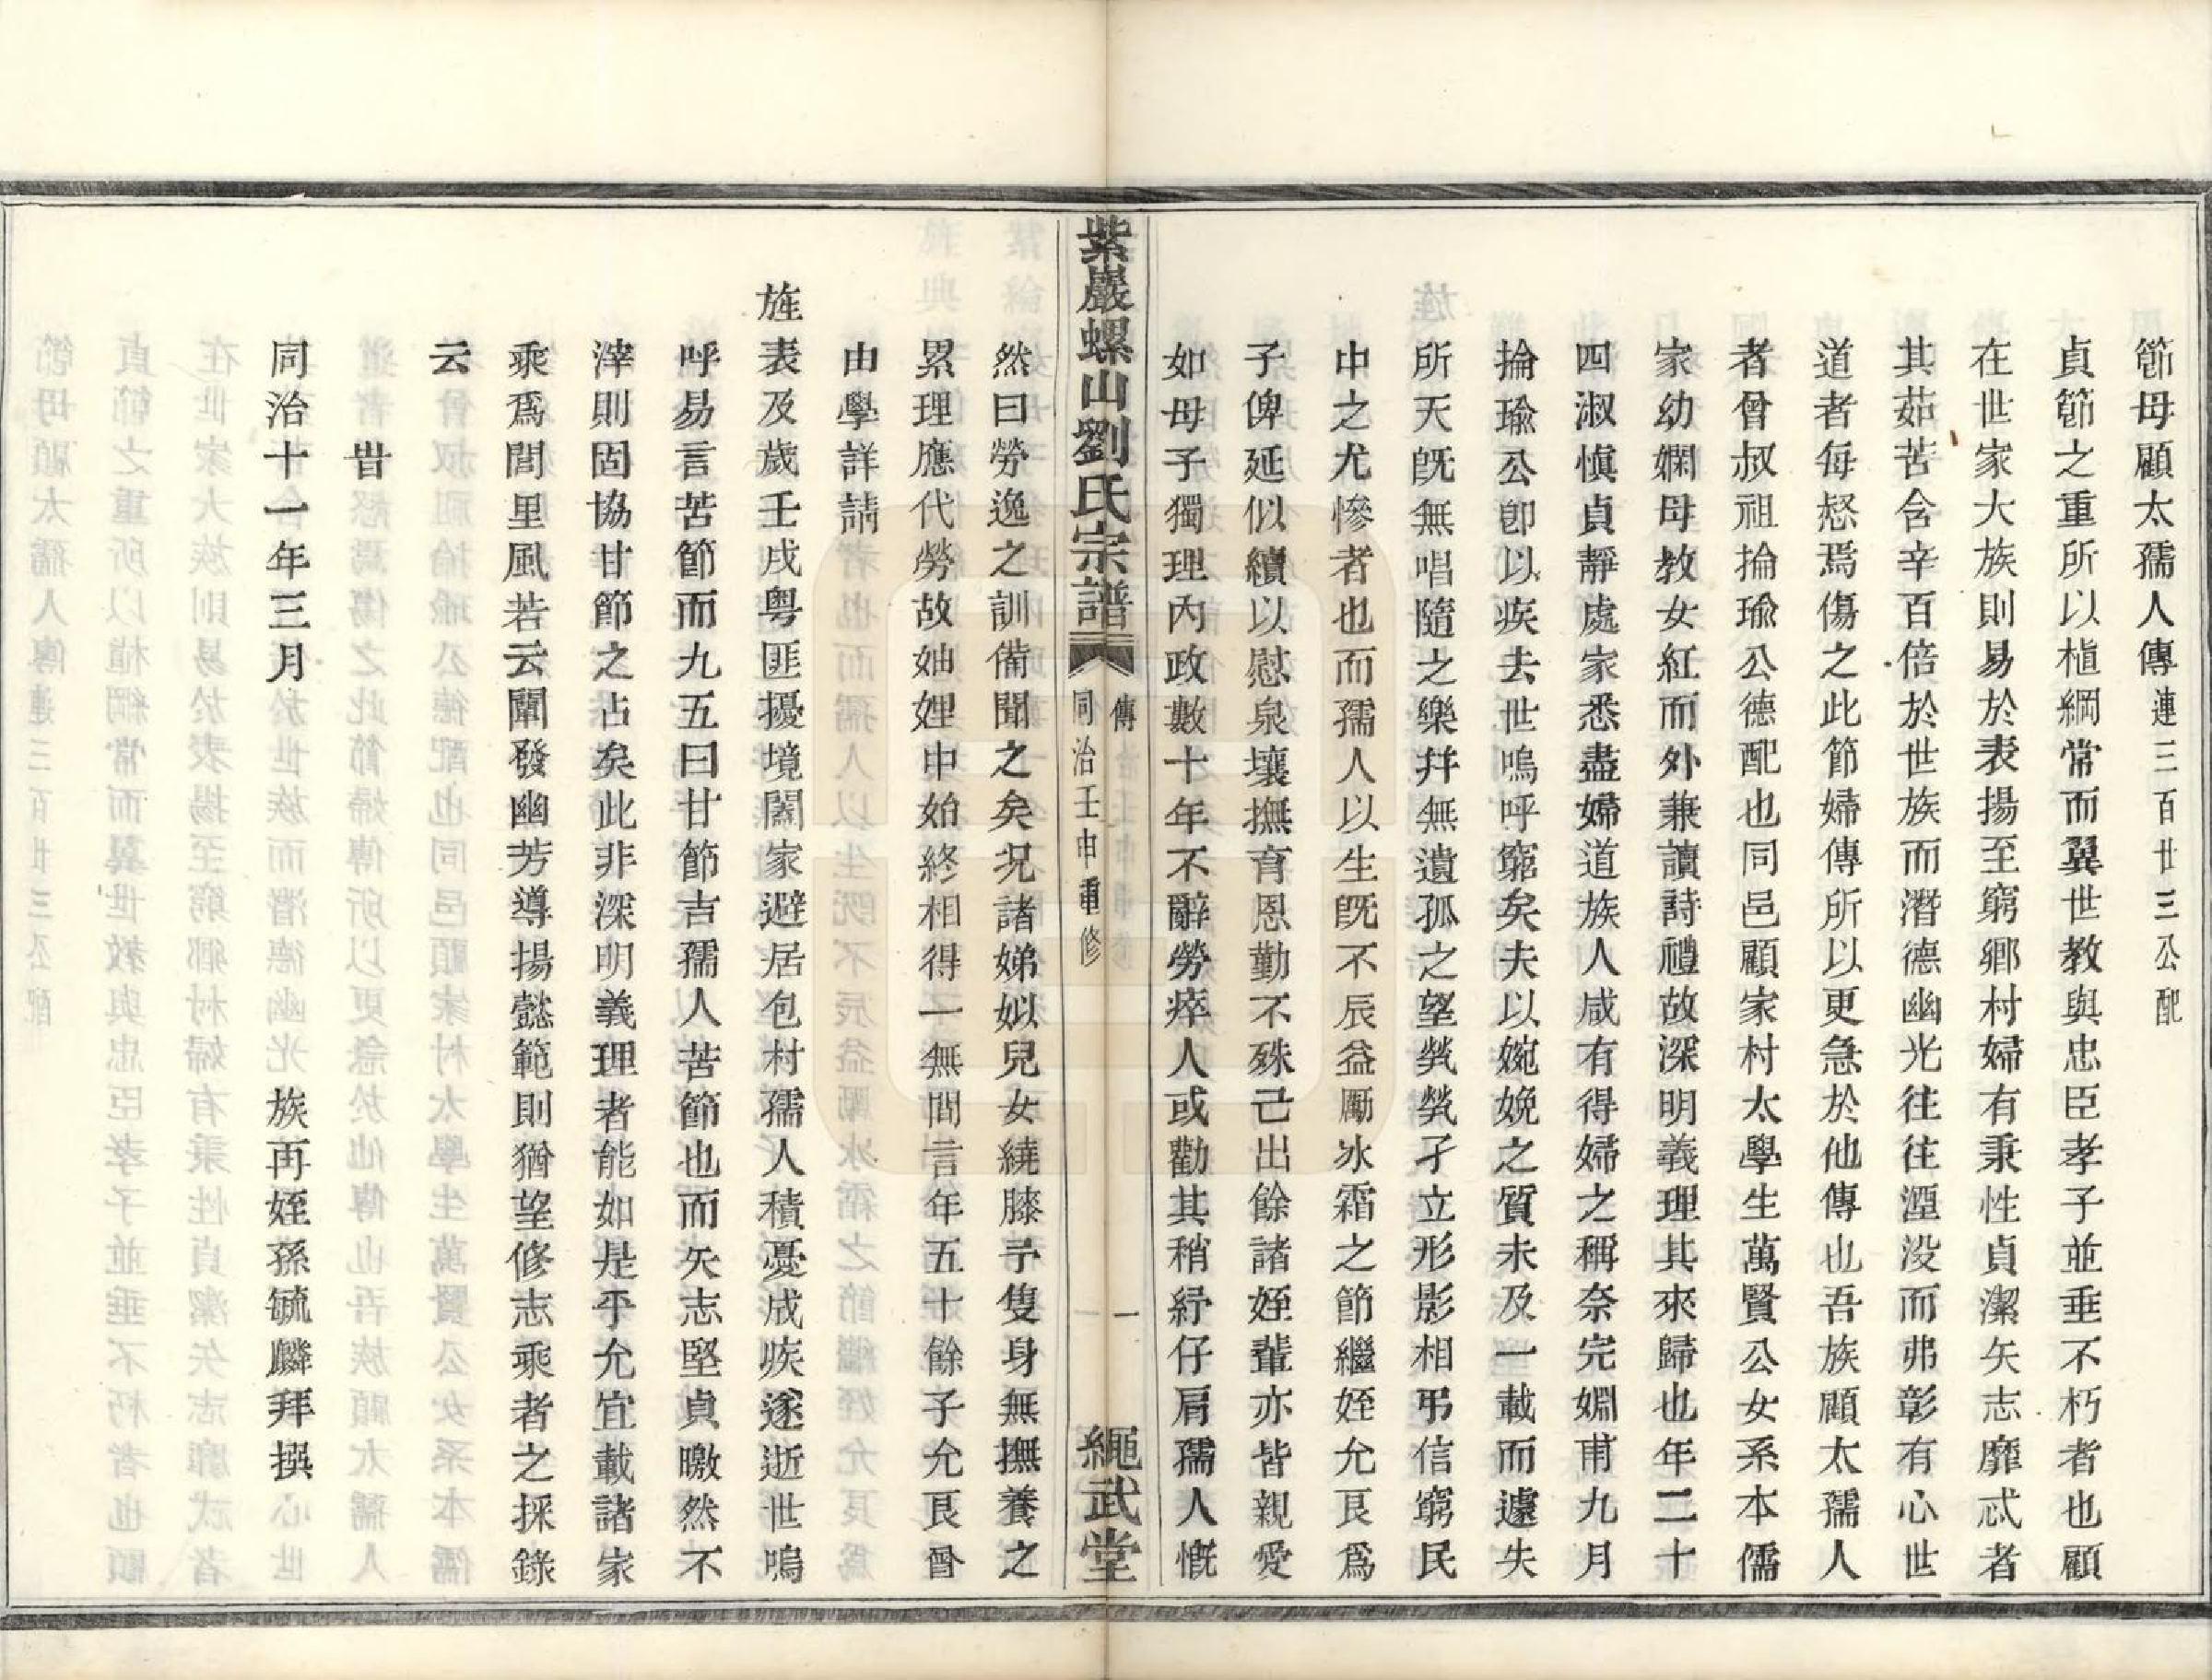 節母顧太孺人傳連三百廿三公配
貞節之重所以植綱常而翼世教與忠臣孝子並垂不朽者也顧
在世家大族則易於表揚至窮鄉村婦有秉性貞潔矢志靡忒者
其茹苦含辛百倍於世族而潛德幽光往往湮没而弗彰有心世
道者每惄焉傷之此節婦傳所以更急於他傳也吾族顧太孺人
者曾叔祖掄瑜公德配也同邑顧家村太學生萬賢公女系本儒
家幼嫻母教女紅而外兼讀詩禮故深明義理其來歸也年二十
四淑慎貞靜處家悉盡婦道族人咸有得婦之稱奈完婣甫九月
掄瑜公卽以疾去世嗚呼窮矣夫以婉娩之質未及一載而遽失
所天旣無唱隨之樂幷無遺孤之望煢煢孑立形影相弔信窮民
中之尤慘者也而孺人以生旣不辰益勵冰霜之節繼姪允艮爲
子俾延似續以慰泉壤撫育恩勤不殊己出餘諸姪輩亦皆親愛
如母子獨理內政數十年不辭勞瘁人或勸其稍紓仔肩孺人慨
紫巖螺山劉氏宗譜
傳
同治壬申重修
一
繩武堂
然曰勞逸之訓備聞之矣况諸娣姒兒女繞膝予隻身無撫養之
累理應代勞故妯娌中始終相得一無間言年五十餘子允艮曾
由學詳請
旌表及歲壬戌粤匪擾境闔家避居包村孺人積憂成疾遂逝世嗚
呼易言苦節而九五曰甘節吉孺人苦節也而矢志堅貞皦然不
滓則固協甘節之占矣此非深明義理者能如是乎允宜載諸家
乘爲閭里風若云闡發幽芳導揚懿範則猶望修志乘者之採錄
云
旹
同治十一年三月　族再姪孫毓麟拜撰